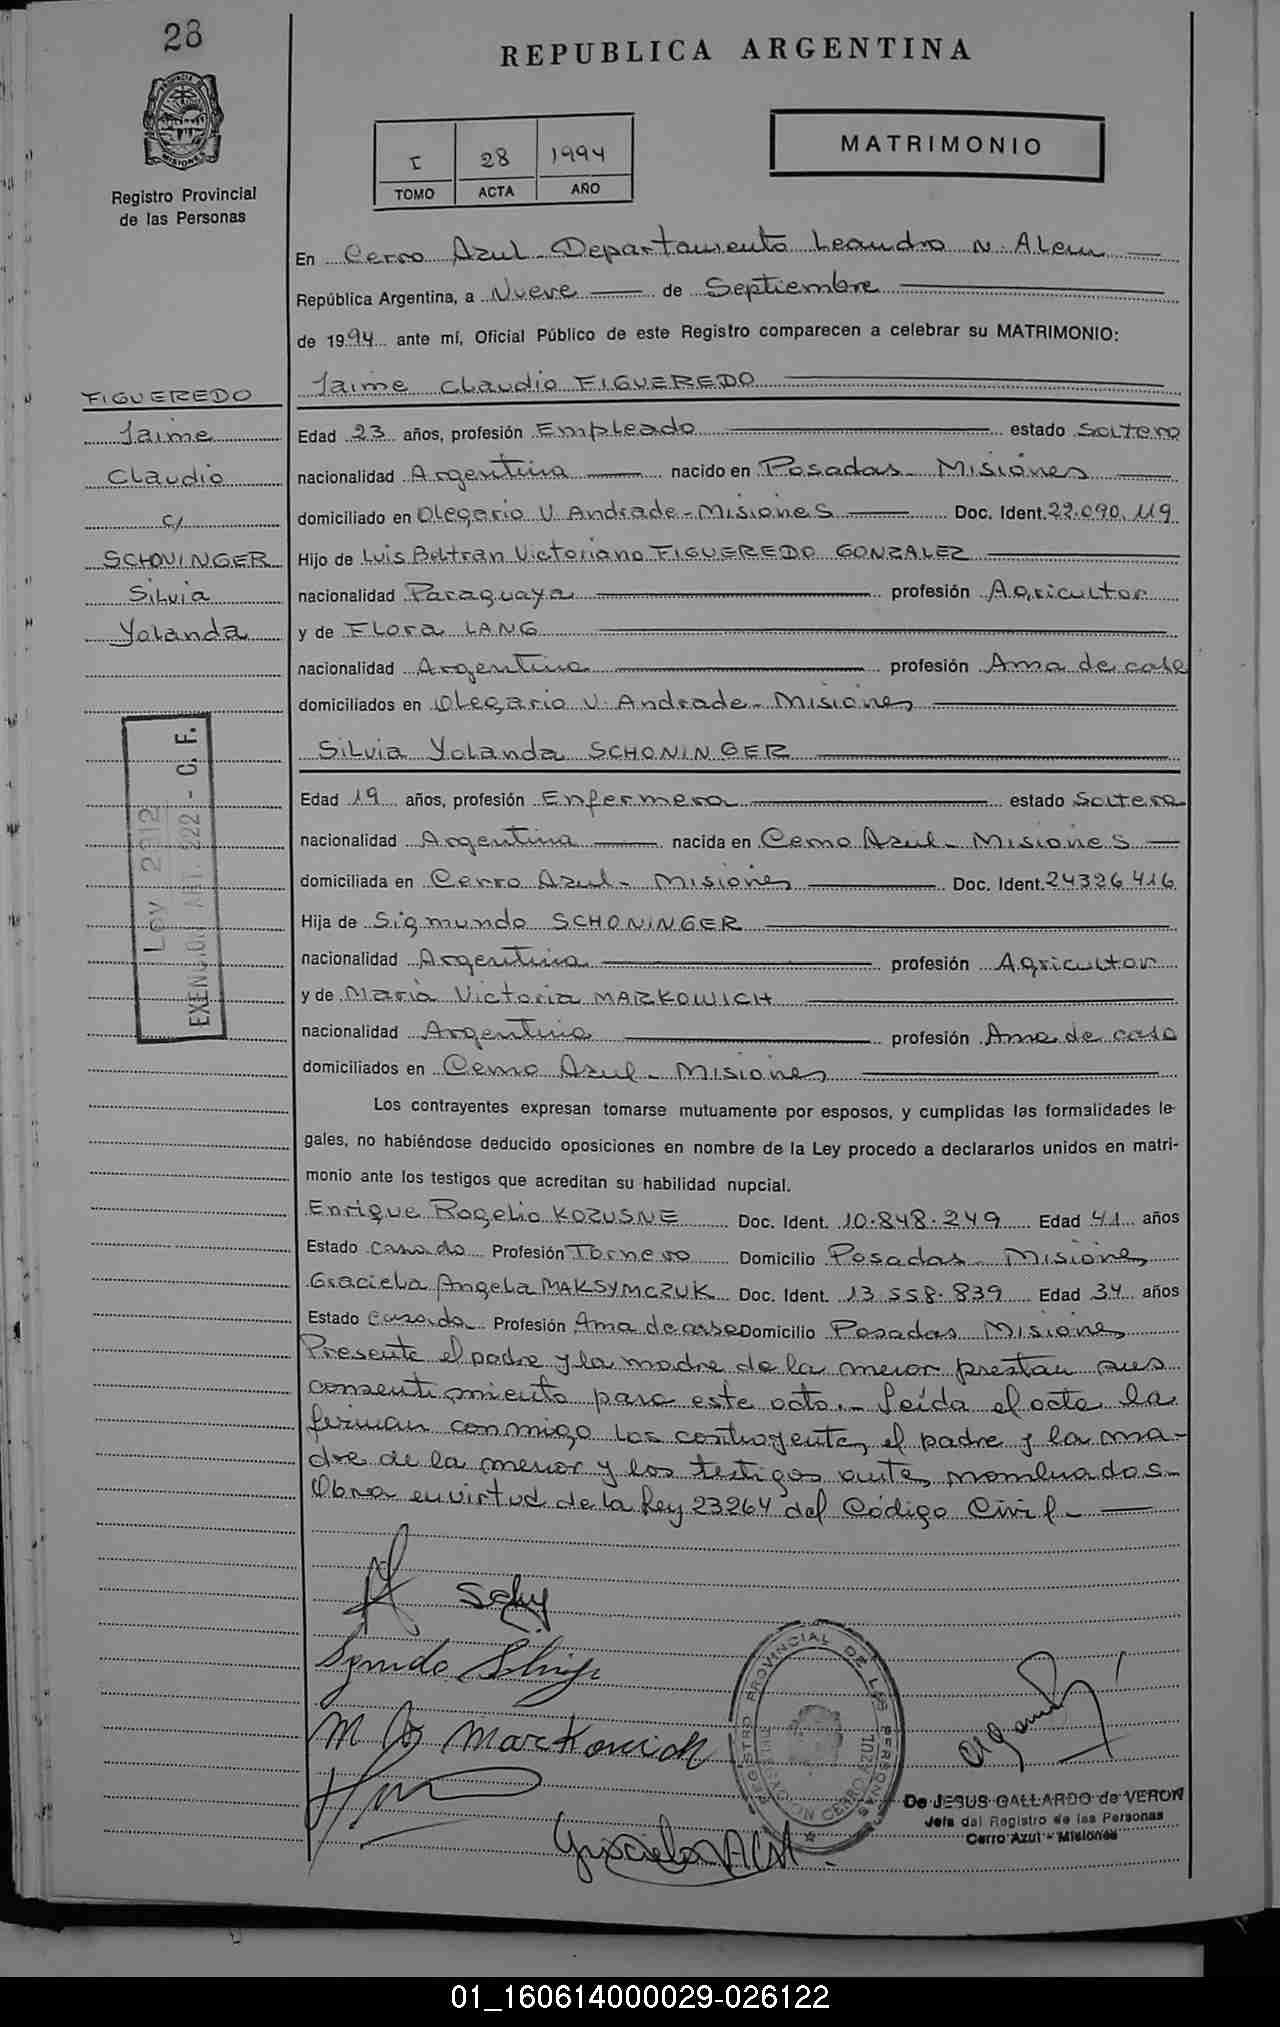 28
REPUBLICA ARGENTINA
PROVINCIA DE MISIONES
Registro Provincial
de las Personas
I 28 1994
TOMO ACTA AÑO
MATRIMONIO
En Cerro Azul - Departamento Leandro N. Alem
República Argentina, a Nueve de Septiembre
de 1994 ante mí, Oficial Público de este Registro comparecen a celebrar su MATRIMONIO:
Jaime Claudio FIGUEREDO
FIGUEREDO
Jaime
Claudio
c/
SCHOVINGER
Silvia
Yolanda
Edad 23 años, profesión Empleado estado Soltero
nacionalidad Argentina nacido en Posadas - Misiones
domiciliado en Olegario V. Andrade - Misiones Doc. Ident. 22.090.119
Hijo de Luis Beltran Victoriano FIGUEREDO GONZALEZ
nacionalidad Paraguaya profesión Agricultor
y de Flora LANG
nacionalidad Argentina profesión Ama de casa
domiciliados en Olegario V. Andrade - Misiones
Silvia Yolanda SCHONINGER
Edad 19 años, profesión Enfermera estado Soltera
nacionalidad Argentina nacida en Cerro Azul - Misiones
domiciliada en Cerro Azul - Misiones Doc. Ident. 24326416
Hija de Sigmundo SCHONINGER
nacionalidad Argentina profesión Agricultor
y de Maria Victoria MARKOWICH
nacionalidad Argentina profesión Ama de casa
domiciliados en Cerro Azul - Misiones
Ley 2312
EXENCION ART. 222 - C. F.
Los contrayentes expresan tomarse mutuamente por esposos, y cumplidas las formalidades le-
gales, no habiéndose deducido oposiciones en nombre de la Ley procedo a declararlos unidos en matri-
monio ante los testigos que acreditan su habilidad nupcial.
Enrique Rogelio KOZUSNE Doc. Ident. 10.848.249 Edad 41 años
Estado Casado Profesión Tornero Domicilio Posadas - Misiones
Graciela Angela MAKSYMCZUK Doc. Ident. 13.558.839 Edad 34 años
Estado Casada Profesión Ama de casa Domicilio Posadas Misiones
Presente el padre y la madre de la menor prestan sus
consentimiento para este acto. - Leída el acta la
firman conmigo los contrayentes, el padre y la ma-
dre de la menor y los testigos antes nombrados -
Obra en virtud de la Ley 23264 del Código Civil -
M Markowich
REGISTRO PROVINCIAL DE LAS PERSONAS
CERRO AZUL
De JESUS GALLARDO de VERON
Jefe del Registro de las Personas
Cerro Azul - Misiones
01_160614000029-026122